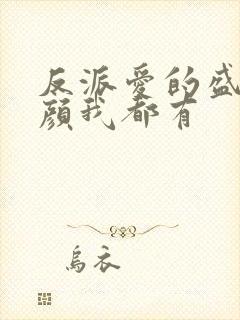 反派爱的盛
颜我都有
乌衣